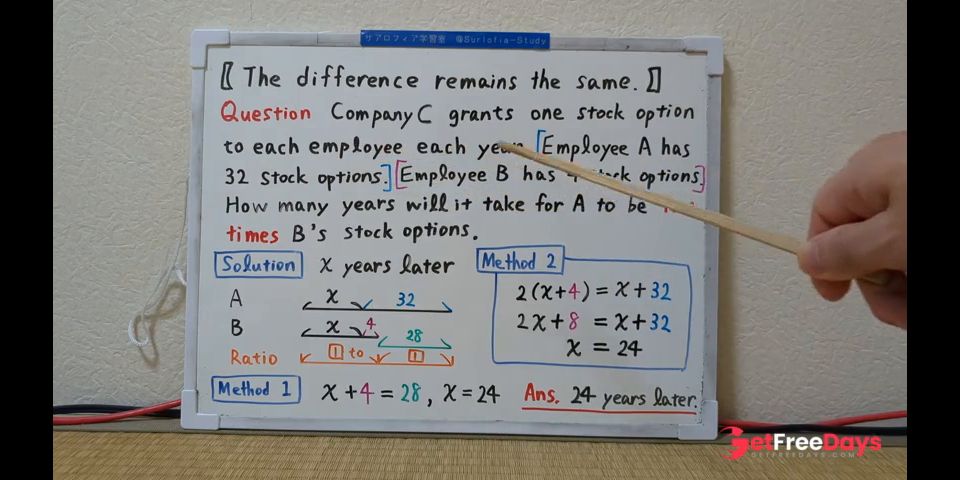 サアロフィア学習室 @Surlofia-Study
〚 The difference remains the same. 〛
Question Company C grants one stock option
to each employee each year [Employee A has
32 stock options.] [Employee B has 4 stock options]
How many years will it take for A to be
times B's stock options.
Solution x years later
Method 2
A x 32
B x 4 28
Ratio 1 to 1
2(x+4) = x+32
2x+8 = x+32
x = 24
Method 1 x+4=28, x=24 Ans. 24 years later.
GetFreeDays
GETFREEDAYS.COM